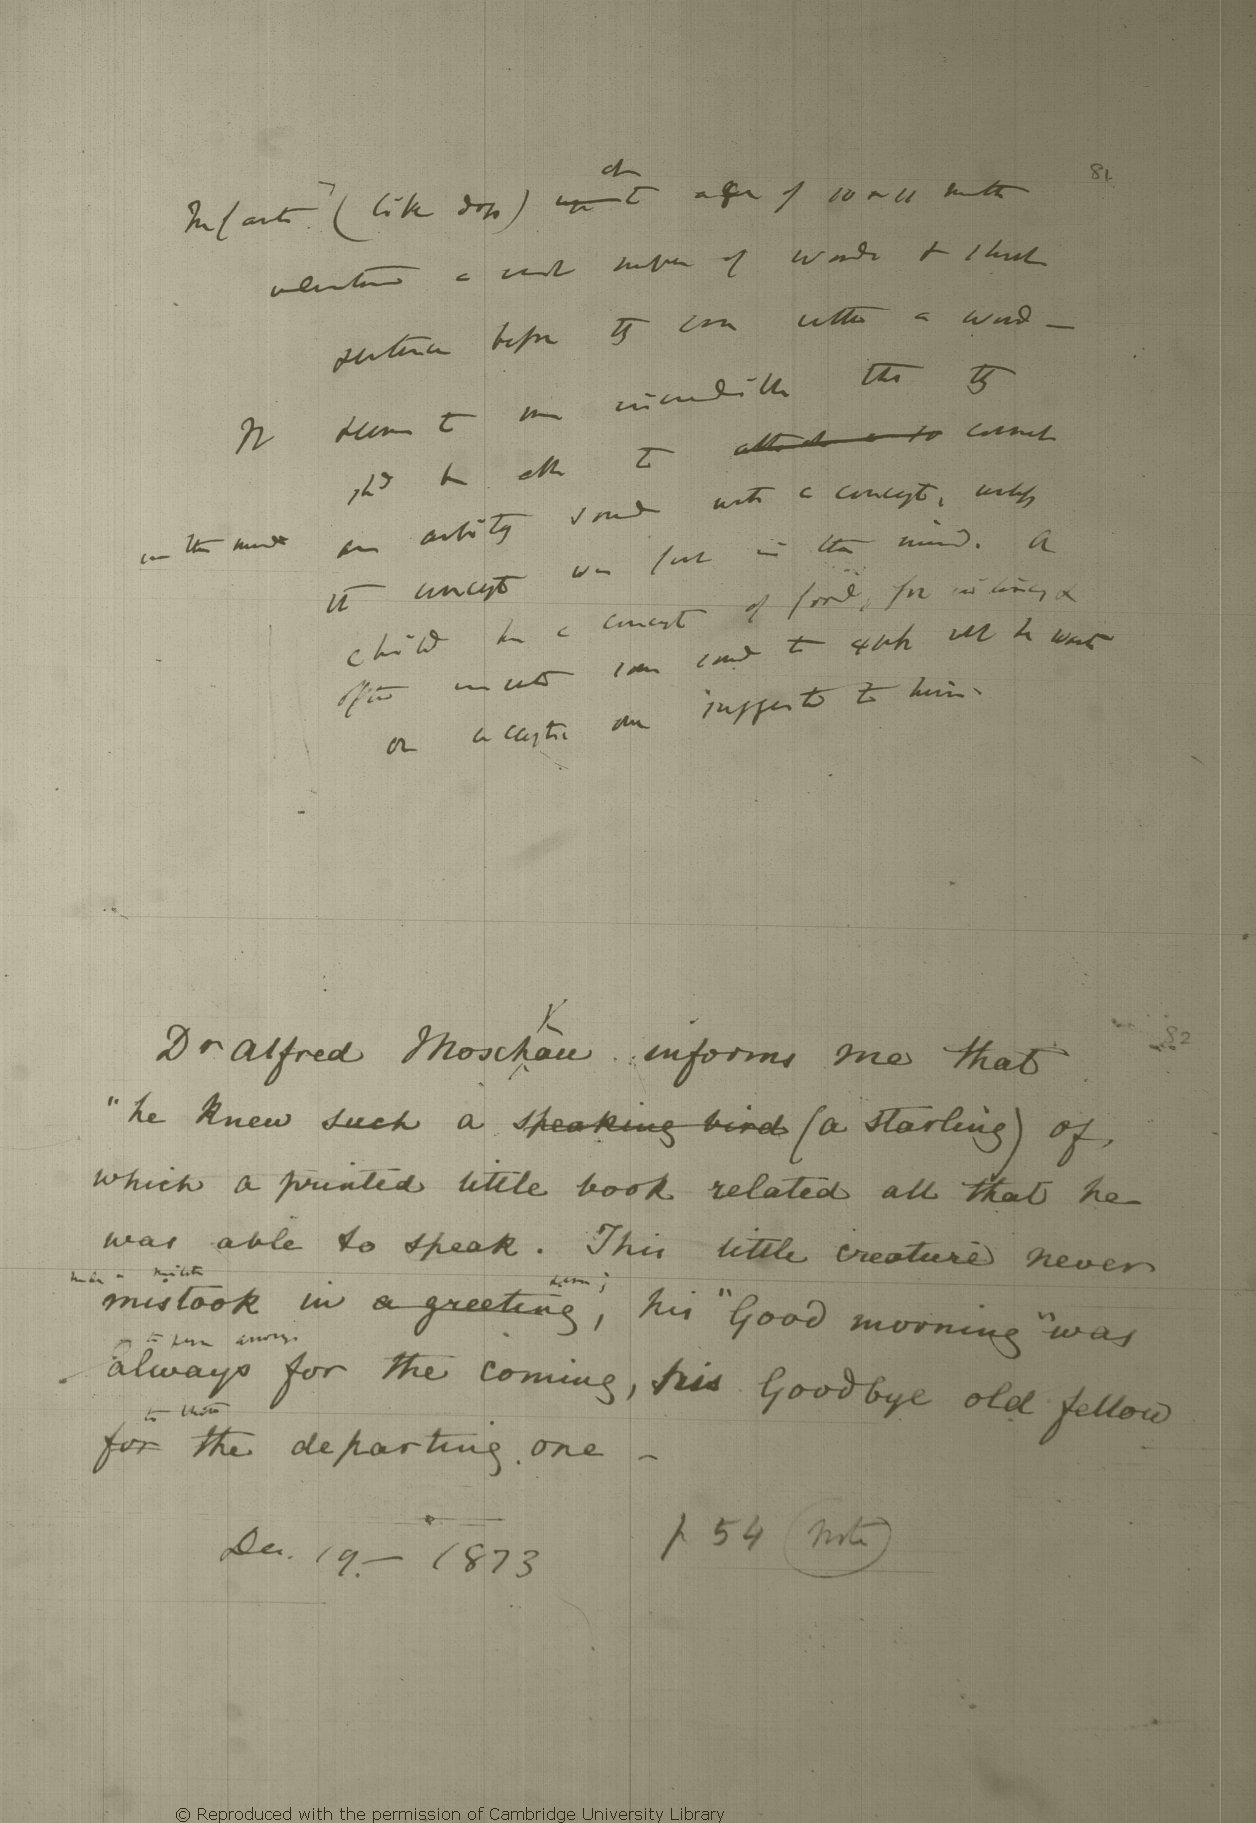 81
Infants (like dogs) at age of 10 or 11 months
understand a vast number of words & short
sentences before they can utter a word —
It seems to me incredible that they
shd be able to connect
in the mind an arbitrary sound with a concept, unless
the concept was first in the mind. A
child has a concept of food, for
often some sound to
or accepts one suggested to him.
82
Dr Alfred Moschkau informs me that
"he knew such a speaking bird (a starling) of
which a printed little book related all that he
was able to speak. This little creature never
mistook in a greeting, his "Good morning" was
to persons
always for the coming, his Goodbye old fellow
to those
for the departing one —
Dec. 19. — 1873
p 54 Note
© Reproduced with the permission of Cambridge University Library